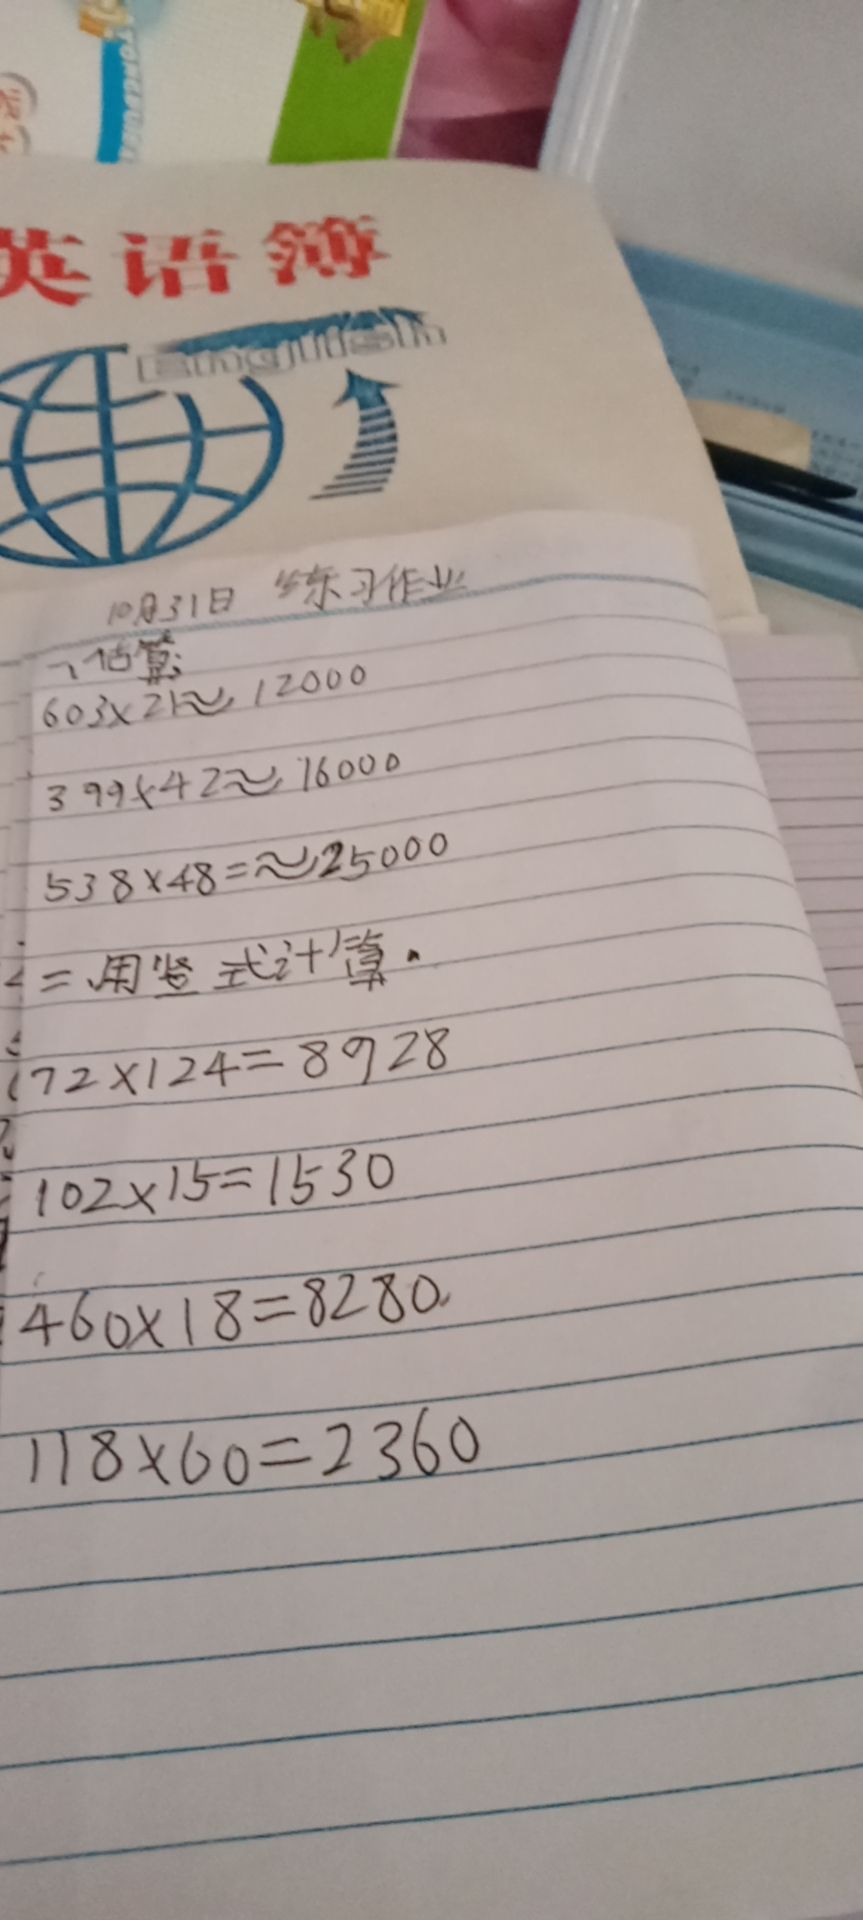 英语簿
English
10月31日 练习作业
一、估算;
603×21≈12000
399×42≈16000
538×48=≈25000
二用竖式计算.
72×124=8928
102×15=1530
460×18=8280
118×60=2360